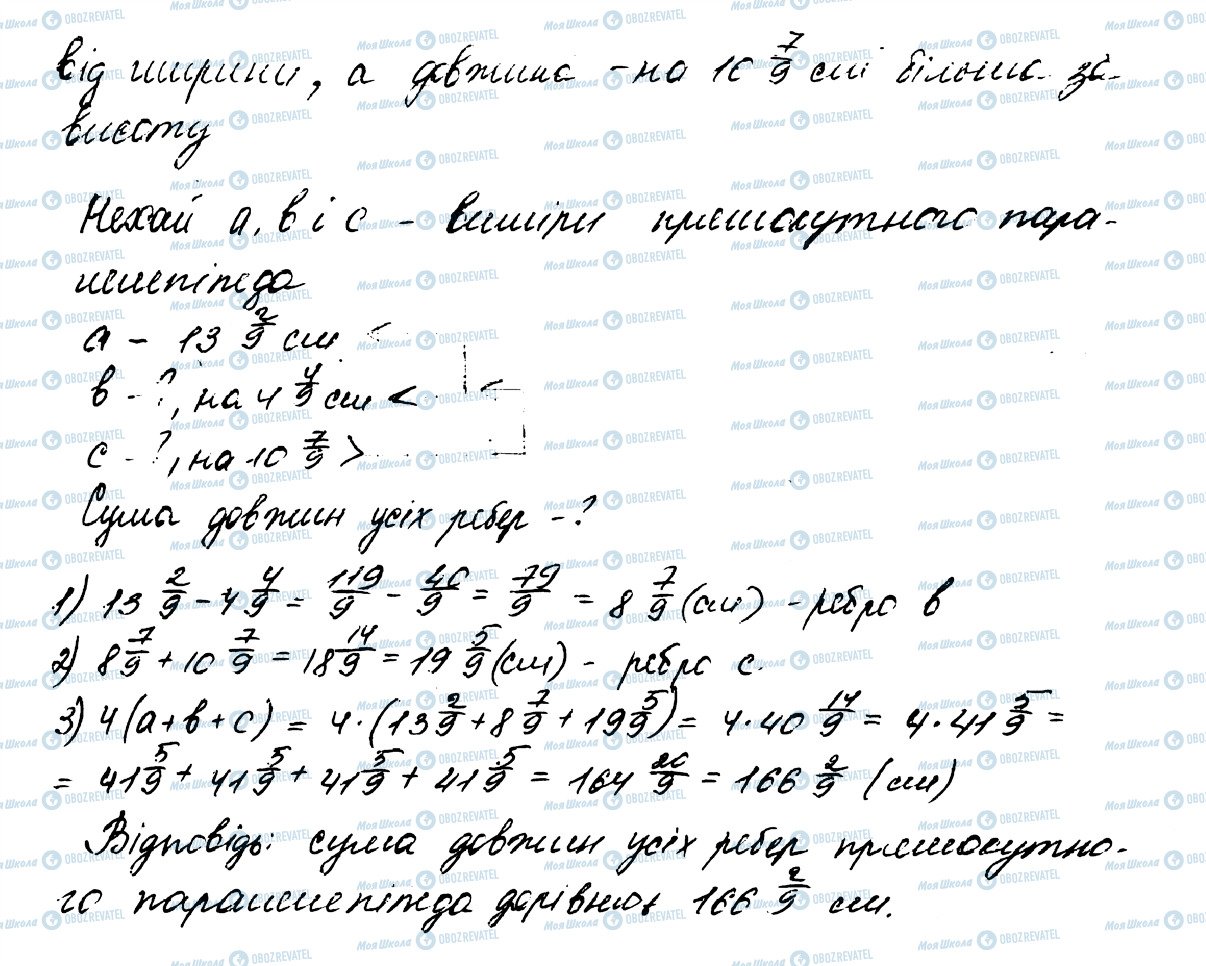 від ширини, а довжина - на 10 7/9 см більша за
висоту
Нехай а, в і с - виміри прямокутного пара-
лелепіпеда
а - 13 2/9 см <
в - ?, на 4 4/9 см <
с - ?, на 10 7/9 >
Сума довжин усіх ребер - ?
1) 13 2/9 - 4 4/9 = 119/9 - 40/9 = 79/9 = 8 7/9 (см) - ребро в
2) 8 7/9 + 10 7/9 = 18 14/9 = 19 5/9 (см) - ребро с.
3) 4(а+в+с) = 4·(13 2/9 + 8 7/9 + 19 5/9) = 4·40 14/9 = 4·41 5/9 =
= 41 5/9 + 41 5/9 + 41 5/9 + 41 5/9 = 164 20/9 = 166 2/9 (см)
Відповідь: сума довжин усіх ребер прямокутно-
го паралелепіпеда дорівнює 166 2/9 см.
Моя Школа OBOZREVATEL